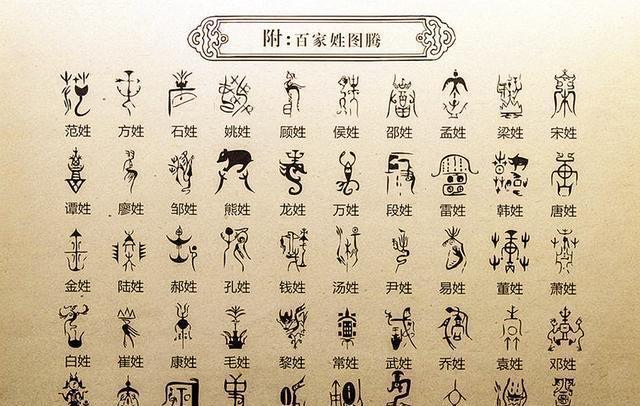 附:百家姓图腾
范姓 方姓 石姓 姚姓 顾姓 侯姓 邵姓 孟姓 梁姓 宋姓
谭姓 廖姓 邹姓 熊姓 龙姓 万姓 段姓 雷姓 韩姓 唐姓
金姓 陆姓 郝姓 孔姓 钱姓 汤姓 尹姓 易姓 董姓 萧姓
白姓 崔姓 康姓 毛姓 黎姓 常姓 武姓 乔姓 袁姓 邓姓